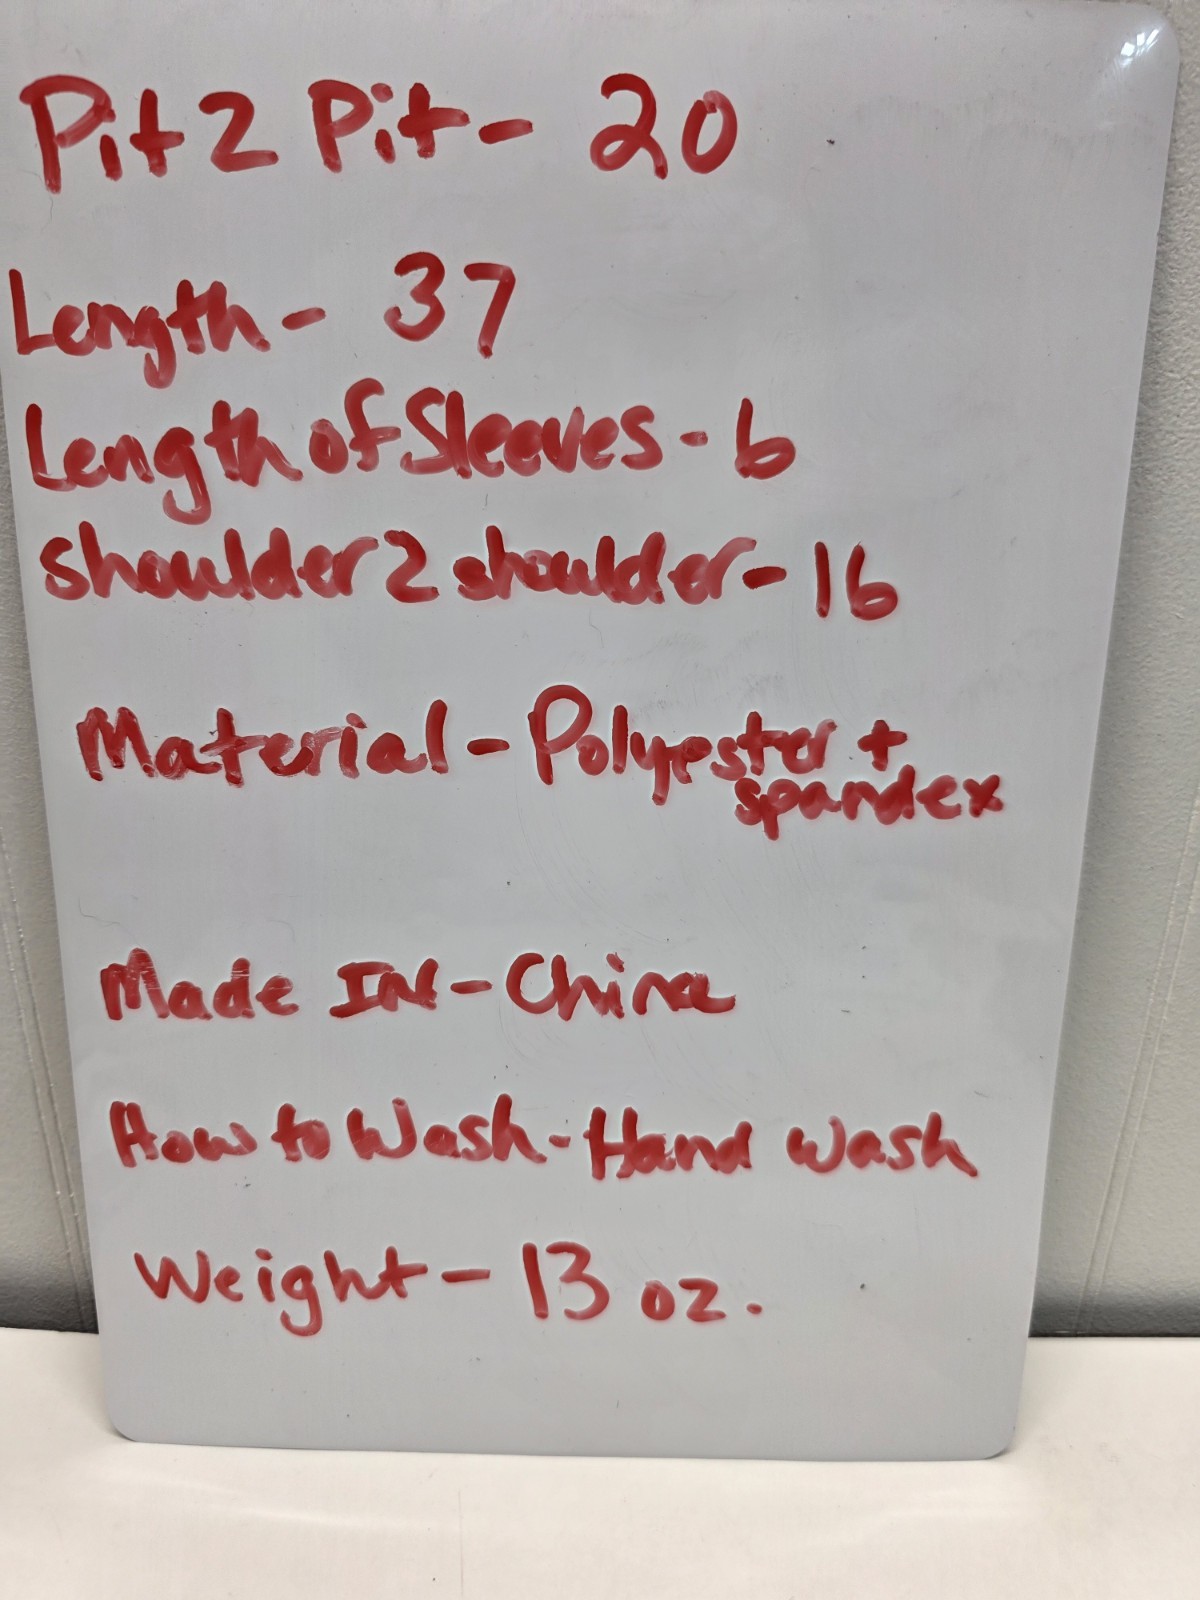 Pit 2 Pit - 20
Length - 37
Length of Sleeves - 6
Shoulder 2 shoulder - 16
Material - Polyester +
spandex
Made IN - China
How to Wash - Hand wash
Weight - 13 oz.